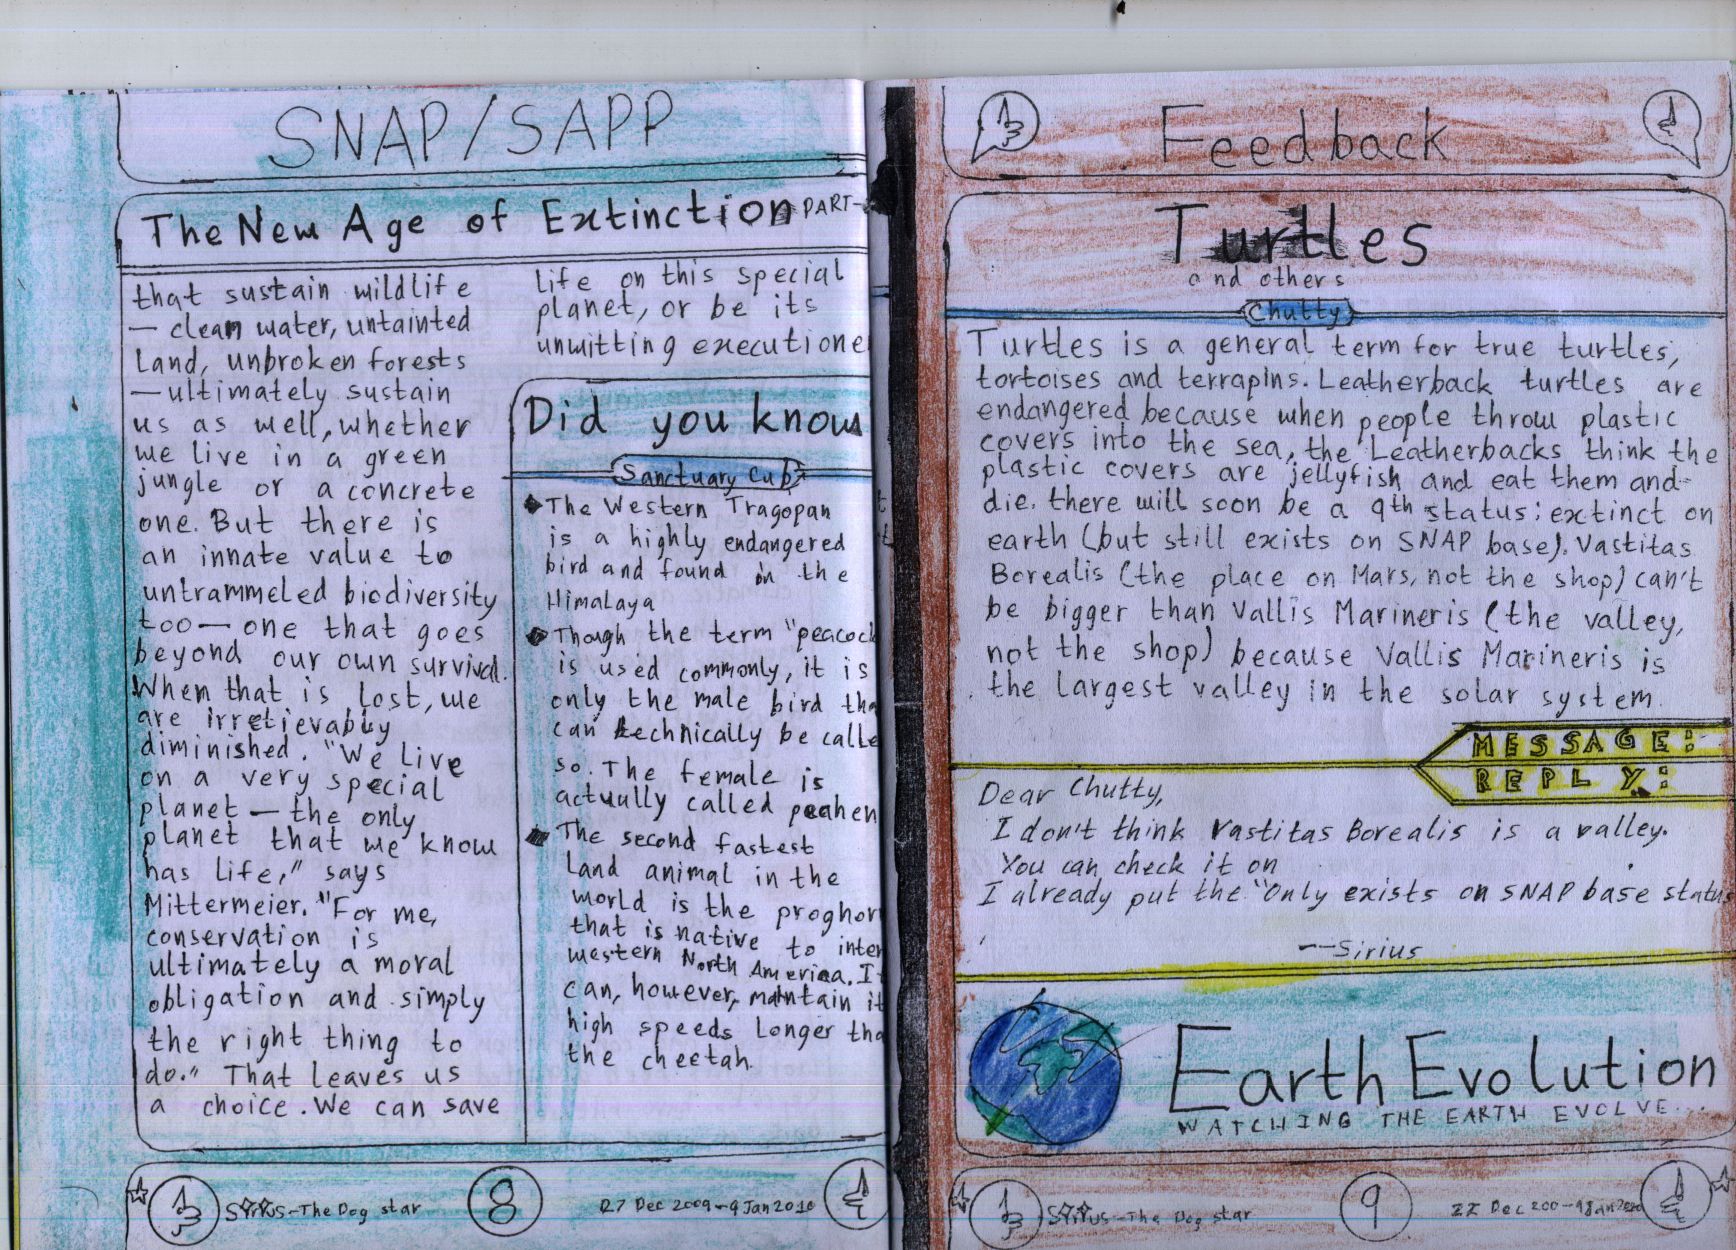 SNAP/SAPP
The New Age of Extinction PART-
that sustain wildlife
— clean water, untainted
Land, unbroken forests
—ultimately sustain
us as well, whether
we live in a green
jungle or a concrete
one. But there is
an innate value to
untrammeled biodiversity
too— one that goes
beyond our own survival.
When that is lost, we
are irretievably
diminished. "We live
on a very special
planet — the only
planet that we know
has life," says
Mittermeier. "For me,
conservation is
ultimately a moral
obligation and simply
the right thing to
do." That leaves us
a choice. We can save
life on this special
planet, or be its
unwitting executione
Did you know
Sanctuary Cub
The Western Tragopan
is a highly endangered
bird and found in the
Himalaya
Though the term "peacock
is used commonly, it is
only the male bird tha
can technically be calle
so. The female is
actually called peahen
The second fastest
Land animal in the
world is the proghor
that is native to inter
western North America. I
can, however, maintain it
high speeds longer tha
the cheetah.
Sirius-The Dog star
8
27 Dec 2009-9 Jan 2010
Feedback
Turtles
and others
Chutty
Turtles is a general term for true turtles,
tortoises and terrapins. Leatherback turtles are
endangered because when people throw plastic
covers into the sea, the Leatherbacks think the
plastic covers are jellyfish and eat them and
die. there will soon be a 9th status: extinct on
earth (but still exists on SNAP base). Vastitas
Borealis (the place on Mars, not the shop) can't
be bigger than Vallis Marineris (the valley,
not the shop) because Vallis Marineris is
the largest valley in the solar system.
MESSAGE:
REPLY:
Dear Chutty,
I don't think Vastitas Borealis is a valley.
You can check it on
I already put the "Only exists on SNAP base status
--Sirius
Earth Evolution
WATCHING THE EARTH EVOLVE...
Sirius-The Dog star
9
Dec 200-9Jan